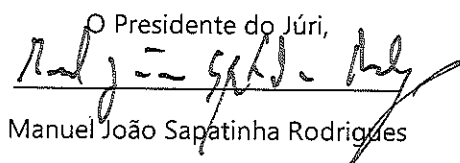 O Presidente do Júri,
Manuel João Sapatinha Rodrigues